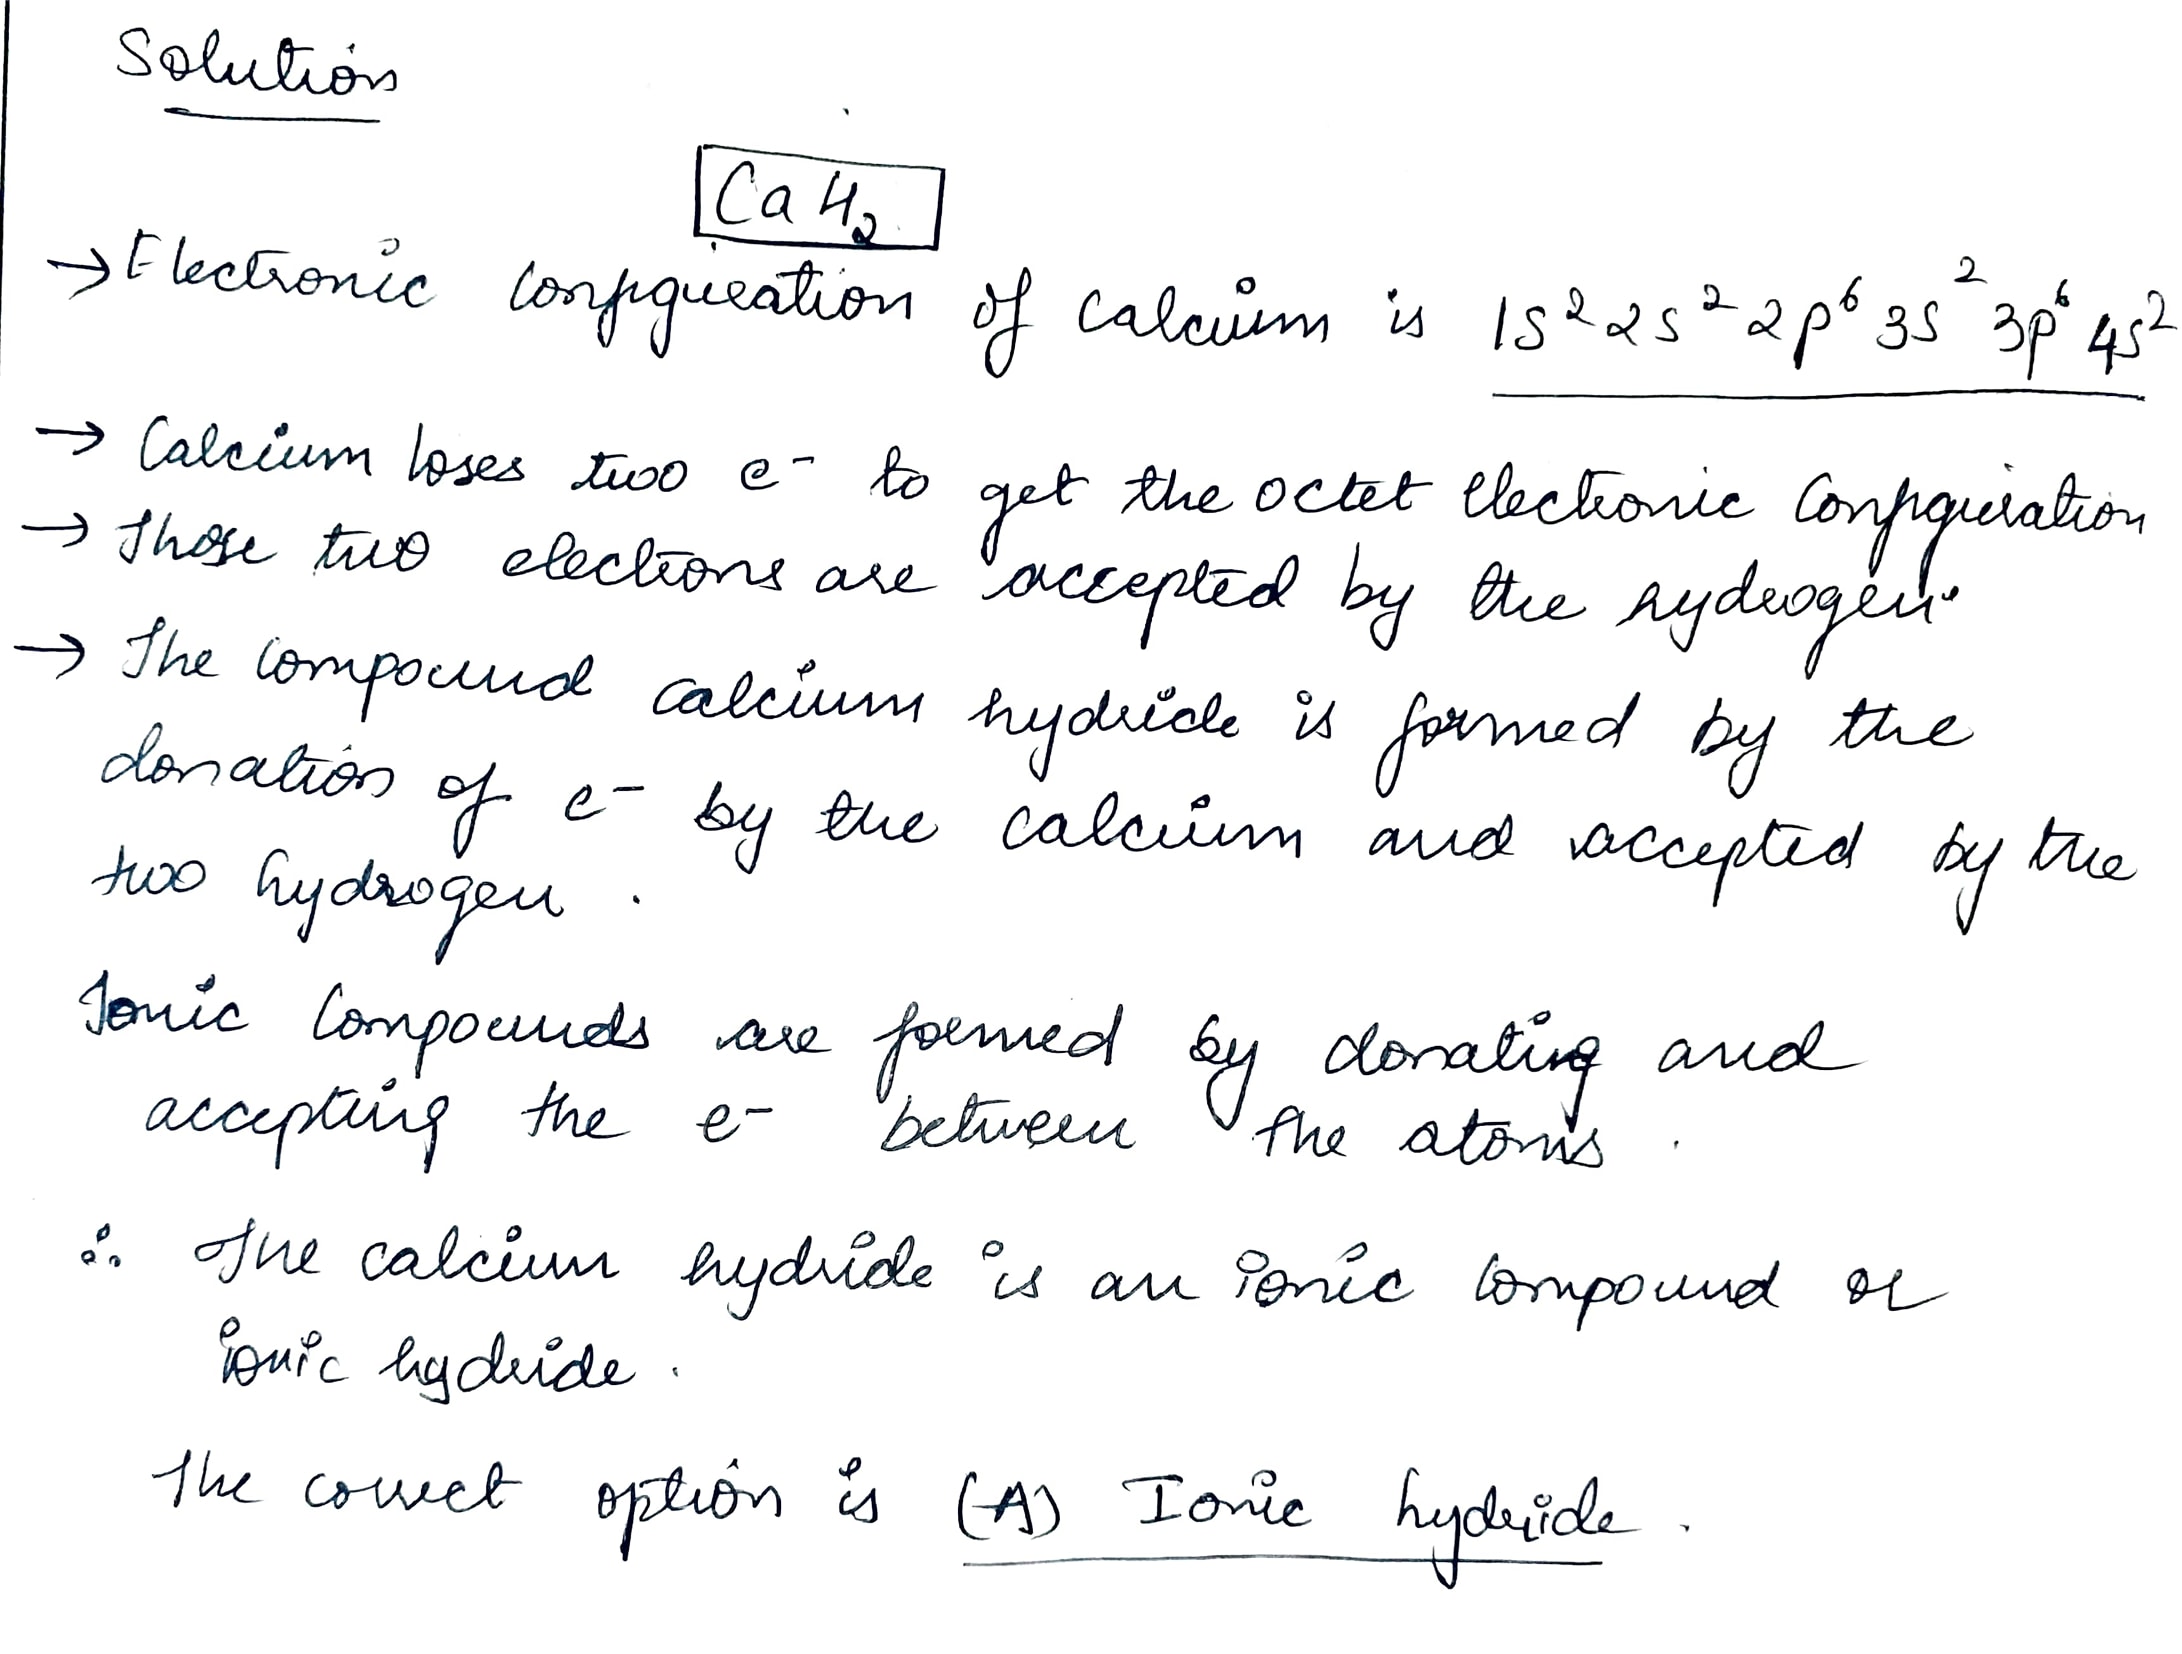 Solution
CaH₂
→ Electronic configuration of calcium is 1s² 2s² 2p⁶ 3s² 3p⁶ 4s²
→ Calcium loses two e⁻ to get the octet electronic configuration
→ Those two electrons are accepted by the hydrogen.
→ The compound calcium hydride is formed by the
donation of e⁻ by the calcium and accepted by the
two hydrogen.
Ionic compounds are formed by donating and
accepting the e⁻ between the atoms.
∴ The calcium hydride is an ionic compound or
ionic hydride.
The correct option is (A) Ionic hydride.